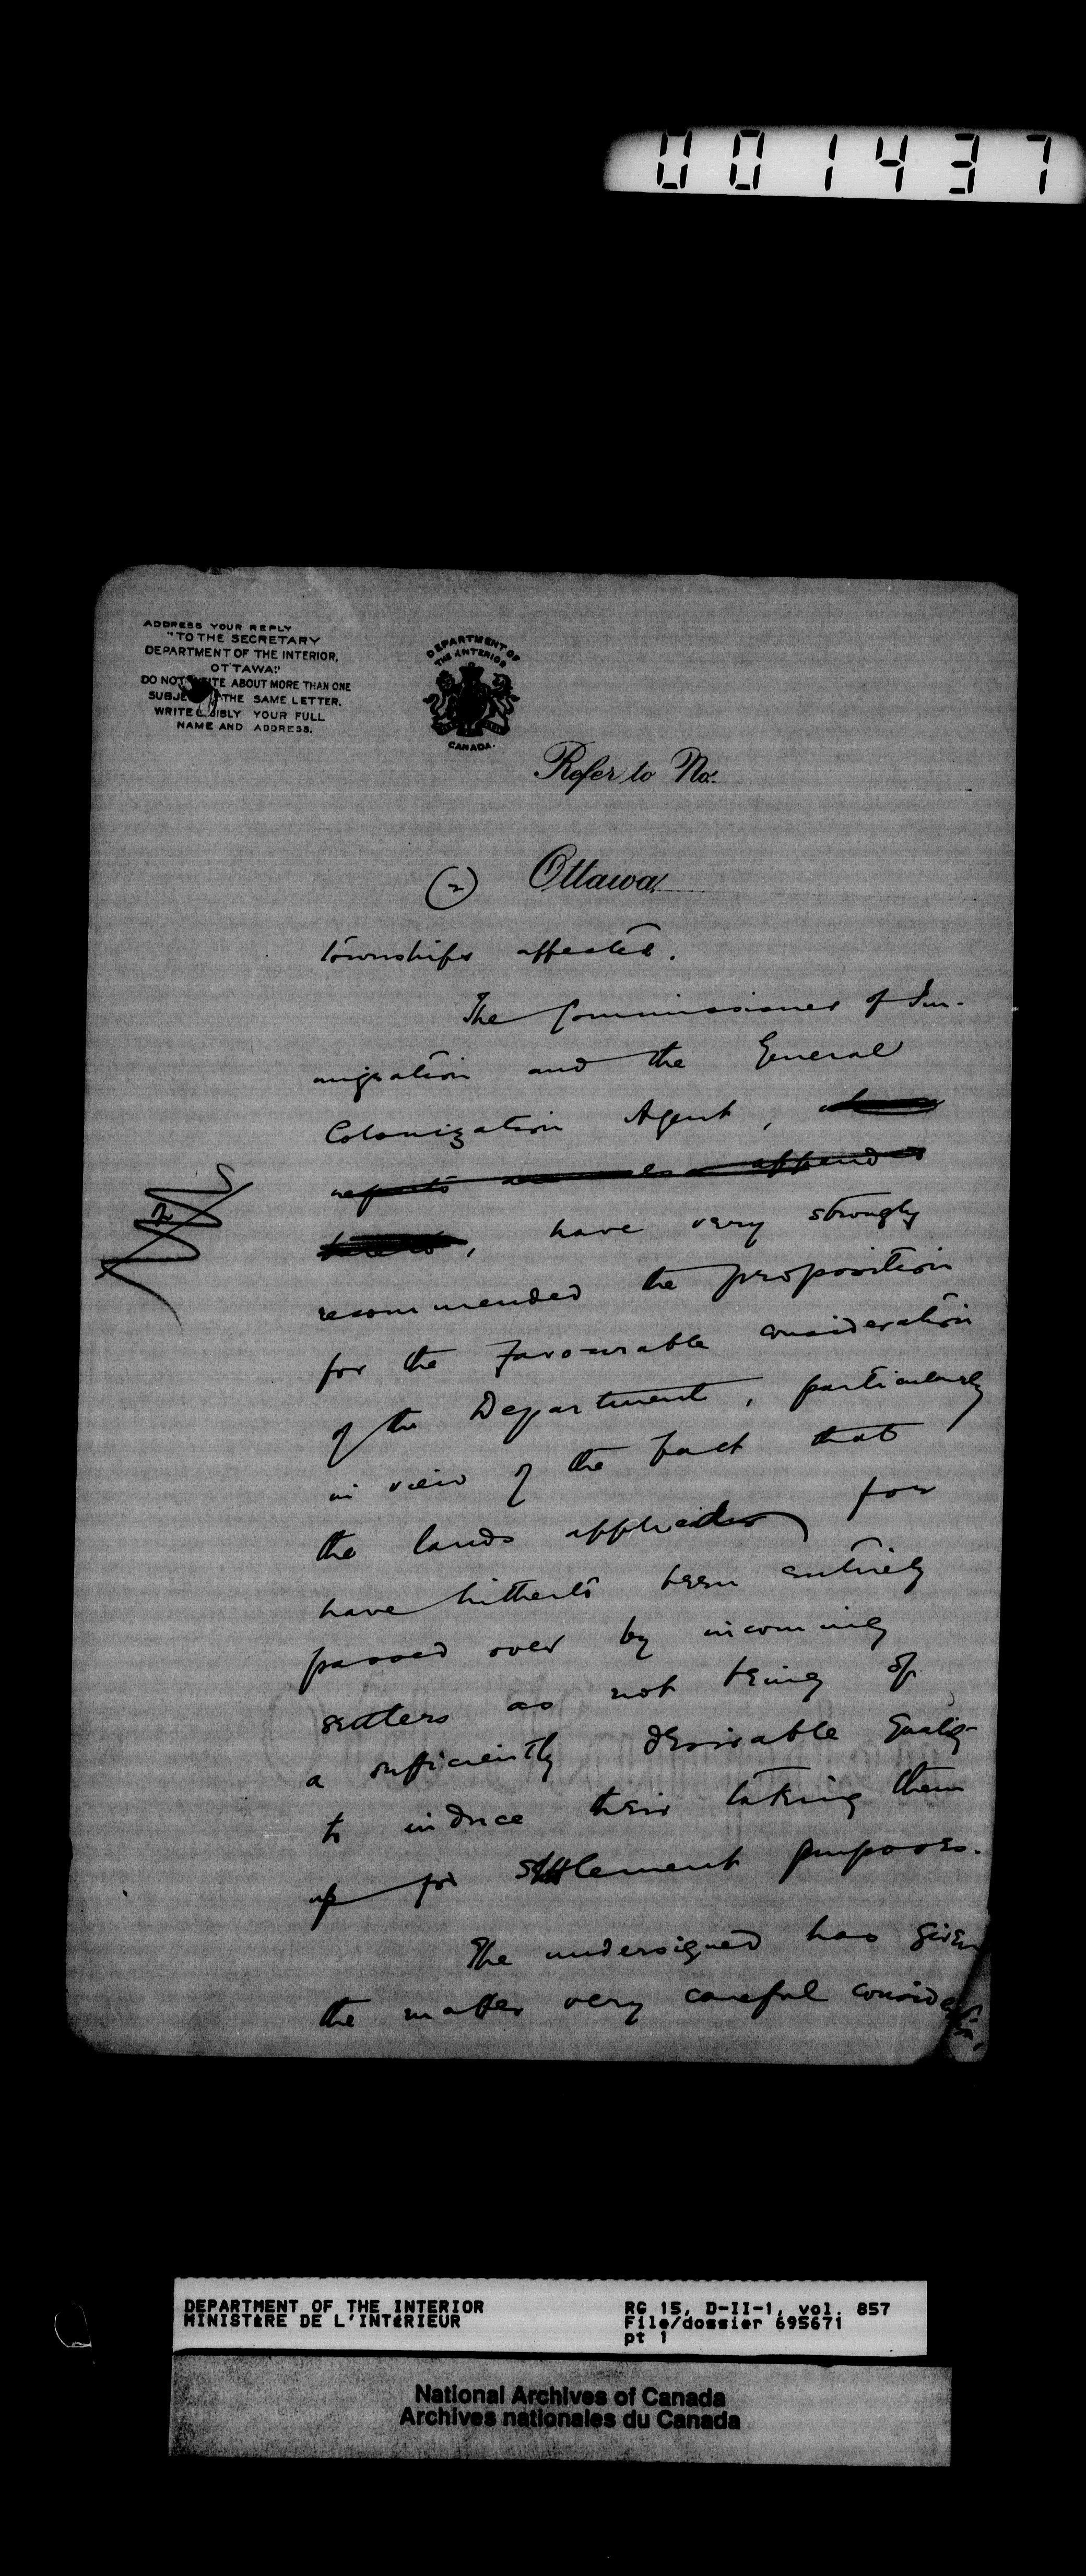 001437
ADDRESS YOUR REPLY
"TO THE SECRETARY
DEPARTMENT OF THE INTERIOR,
OTTAWA."
DO NOT WRITE ABOUT MORE THAN ONE
SUBJECT THE SAME LETTER.
WRITE LEGIBLY YOUR FULL
NAME AND ADDRESS.
DEPARTMENT OF
THE INTERIOR
CANADA.
Refer to No.
(2) Ottawa,
townships affected.
The Commissioner of Im-
migration and the General
Colonization Agent, whose
reports are append
hereto, have very strongly
recommended the proposition
for the favourable consideration
of the Department, particularly
in view of the fact that
the lands applied for
have hitherto been entirely
passed over by incoming
settlers as not being of
a sufficiently desirable quality
to induce their taking them
up for settlement purposes.
The undersigned has given
the matter very careful considera-
DEPARTMENT OF THE INTERIOR
MINISTÈRE DE L'INTÉRIEUR
RG 15, D-II-1, vol. 857
File/dossier 695671
pt 1
National Archives of Canada
Archives nationales du Canada